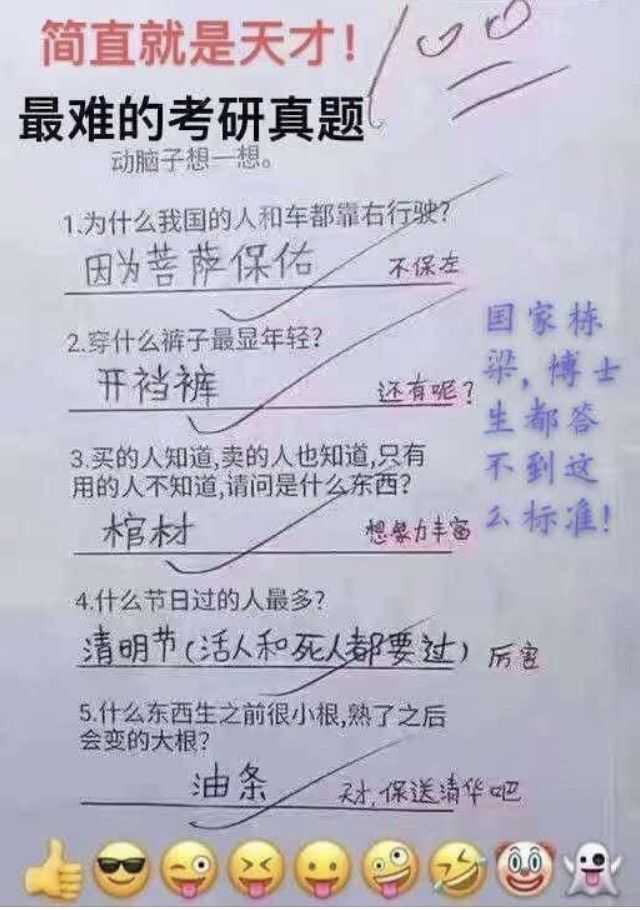 简直就是天才！
100
最难的考研真题
动脑子想一想。
1.为什么我国的人和车都靠右行驶?
因为菩萨保佑 不保左
2.穿什么裤子最显年轻?
开裆裤 还有呢?
3.买的人知道,卖的人也知道,只有
用的人不知道,请问是什么东西?
棺材 想象力丰富
4.什么节日过的人最多?
清明节(活人和死人都要过) 厉害
5.什么东西生之前很小根,熟了之后
会变的大根?
油条 天才,保送清华吧
国家栋
梁,博士
生都答
不到这
么标准!